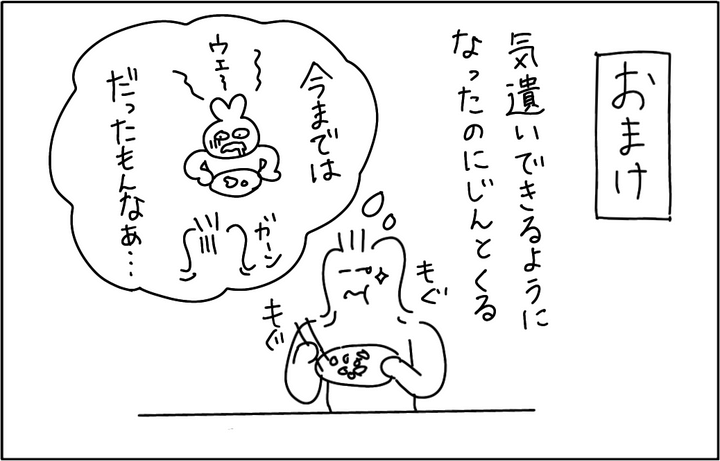 おまけ
気遣いできるように
なったのにじんとくる
今までは
ウェ〜
だったもんなぁ…
ガーン
もぐ
もぐ